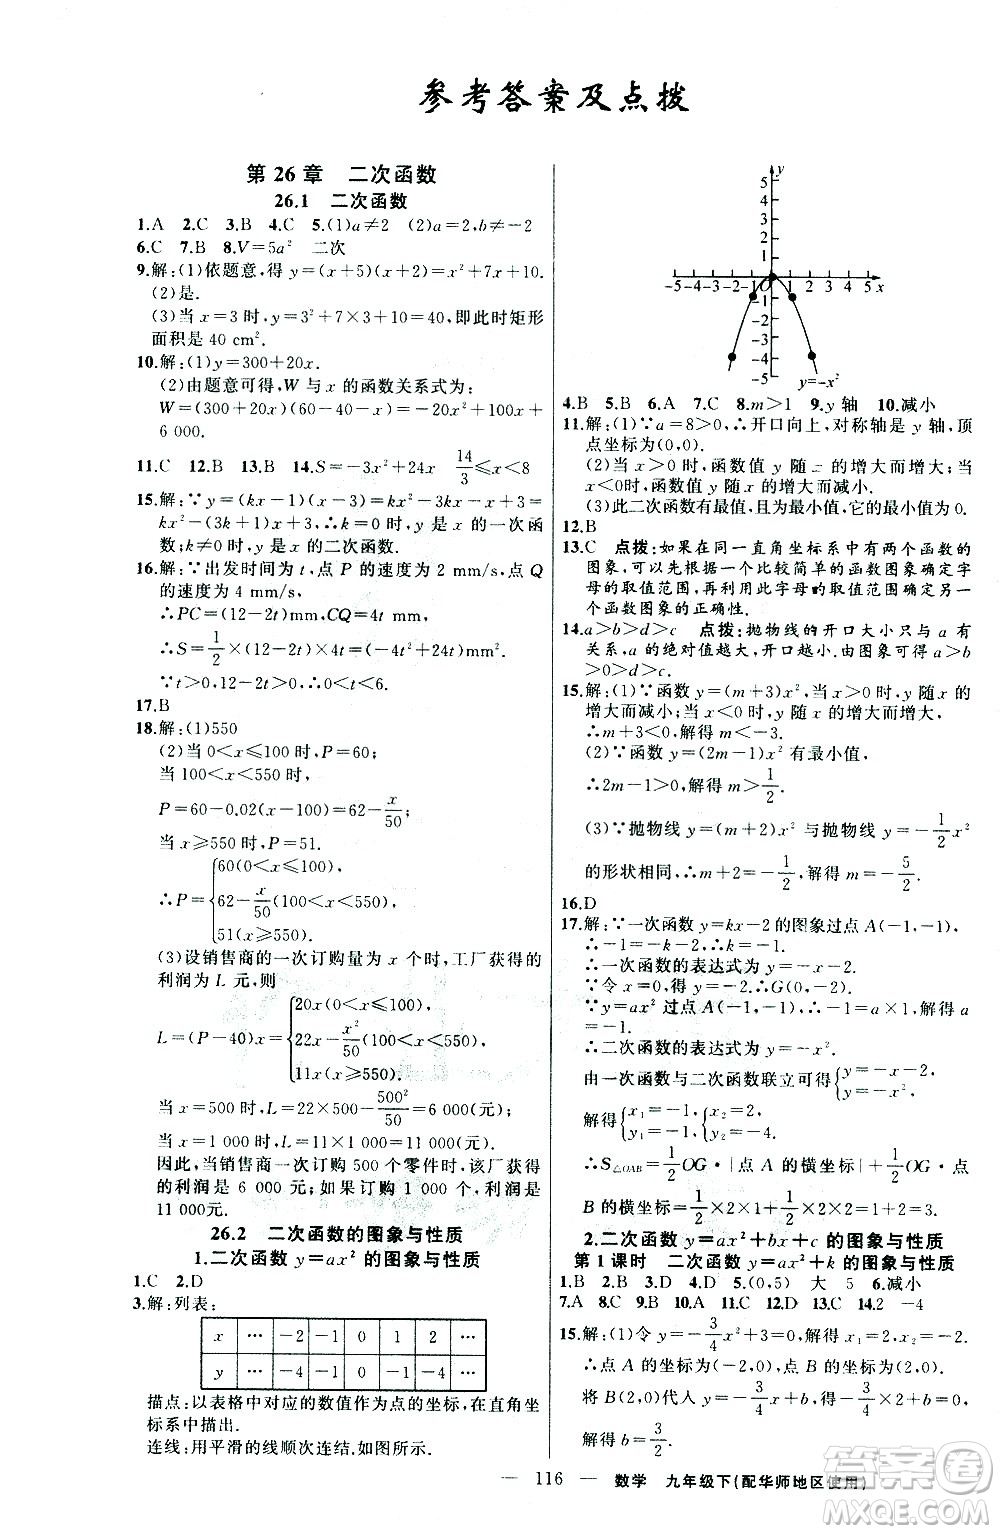 参考答案及点拨
第26章 二次函数
26.1 二次函数
1.A 2.C 3.B 4.C 5.(1)a≠2 (2)a=2,b≠-2
6.C 7.B 8.V=5a² 二次
9.解:(1)依题意,得 y=(x+5)(x+2)=x²+7x+10.
(2)是.
(3)当 x=3 时,y=3²+7×3+10=40,即此时矩形
面积是 40 cm².
10.解:(1)y=300+20x.
(2)由题意可得,W 与 x 的函数关系式为:
W=(300+20x)(60-40-x)=-20x²+100x+
6 000.
11.C 12.B 13.B 14.S=-3x²+24x 14/3≤x<8
15.解:∵y=(kx-1)(x-3)=kx²-3kx-x+3=
kx²-(3k+1)x+3,∴k=0 时,y 是 x 的一次函
数;k≠0 时,y 是 x 的二次函数.
16.解:∵出发时间为 t,点 P 的速度为 2 mm/s,点 Q
的速度为 4 mm/s,
∴PC=(12-2t)mm,CQ=4t mm,
∴S=1/2×(12-2t)×4t=-4t²+24t.
∵t>0,12-2t>0,∴0<t<6.
17.B
18.解:(1)550
(2)当 0<x≤100 时,P=60;
当 100<x<550 时,
P=60-0.02(x-100)=62-x/50;
当 x≥550 时,P=51.
∴P={60(0<x≤100), 62-x/50(100<x<550), 51(x≥550).
(3)设销售商的一次订购量为 x 个时,工厂获得的
利润为 L 元,则
L=(P-40)x={20x(0<x≤100), 22x-x²/50(100<x<550), 11x(x≥550).
当 x=500 时,L=22×500-500²/50=6 000(元);
当 x=1 000 时,L=11×1 000=11 000(元).
因此,当销售商一次订购 500 个零件时,该厂获得
的利润是 6 000 元;如果订购 1 000 个,利润是
11 000元.
26.2 二次函数的图象与性质
1.二次函数 y=ax² 的图象与性质
1.C 2.D
3.解:列表:
x … -2 -1 0 1 2 …
y … -4 -1 0 -1 -4 …
描点:以表格中对应的数值作为点的坐标,在直角坐
标系中描出.
连线:用平滑的线顺次连结,如图所示.
y
5
4
3
2
1
-5-4-3-2-1 O 1 2 3 4 5 x
-1
-2
-3
-4
-5
y=-x²
4.B 5.B 6.A 7.C 8.m>1 9.y 轴 10.减小
11.解:(1)∵a=8>0,∴开口向上,对称轴是 y 轴,顶
点坐标为(0,0).
(2)当 x>0 时,函数值 y 随 x 的增大而增大;当
x<0 时,函数值 y 随 x 的增大而减小.
(3)此二次函数有最值,且为最小值,它的最小值为 0.
12.B
13.C 点拨:如果在同一直角坐标系中有两个函数的
图象,可以先根据一个比较简单的函数图象确定字
母的取值范围,再利用此字母的取值范围确定另一
个函数图象的正确性.
14.a>b>d>c 点拨:抛物线的开口大小只与 a 有
关系,a 的绝对值越大,开口越小.由图象可知,a>b
>0>d>c.
15.解:(1)∵函数 y=(m+3)x²,当 x>0 时,y 随 x 的
增大而减小;当 x<0 时,y 随 x 的增大而增大,
∴m+3<0,解得 m<-3.
(2)∵函数 y=(2m-1)x² 有最小值,
∴2m-1>0,解得 m>1/2.
(3)∵抛物线 y=(m+2)x² 与抛物线 y=-1/2x²
的形状相同,∴m+2=-1/2,解得 m=-5/2.
16.D
17.解:∵一次函数 y=kx-2 的图象过点 A(-1,-1),
∴-1=-k-2,解得 k=-1.
∴一次函数的表达式为 y=-x-2.
∵令 x=0,得 y=-2.∴G(0,-2).
∵y=ax² 过点 A(-1,-1),∴-1=a×1,解得 a
=-1.
∴二次函数的表达式为 y=-x².
由一次函数与二次函数联立可得{y=-x-2, y=-x²,
解得{x₁=-1, y₁=-1, {x₂=2, y₂=-4.
∴S△OAB=1/2OG·|点 A 的横坐标|+1/2OG·点
B 的横坐标=1/2×2×1+1/2×2×2=1+2=3.
2.二次函数 y=ax²+bx+c 的图象与性质
第 1 课时 二次函数 y=ax²+k 的图象与性质
1.B 2.B 3.D 4.D 5.(0,5) 大 5 6.减小
7.A 8.C 9.C 10.A 11.C 12.D 13.C 14.2 -4
15.解:(1)令 y=-3/4x²+3=0,解得 x₁=2,x₂=-2.
∴点 A 的坐标为(-2,0),点 B 的坐标为(2,0).
将 B(2,0)代入 y=-3/4x+b,得-3/4×2+b=0,
解得 b=3/2.
— 116 — 数学 九年级下(配华师地区使用)
答案圈
MXQE.COM